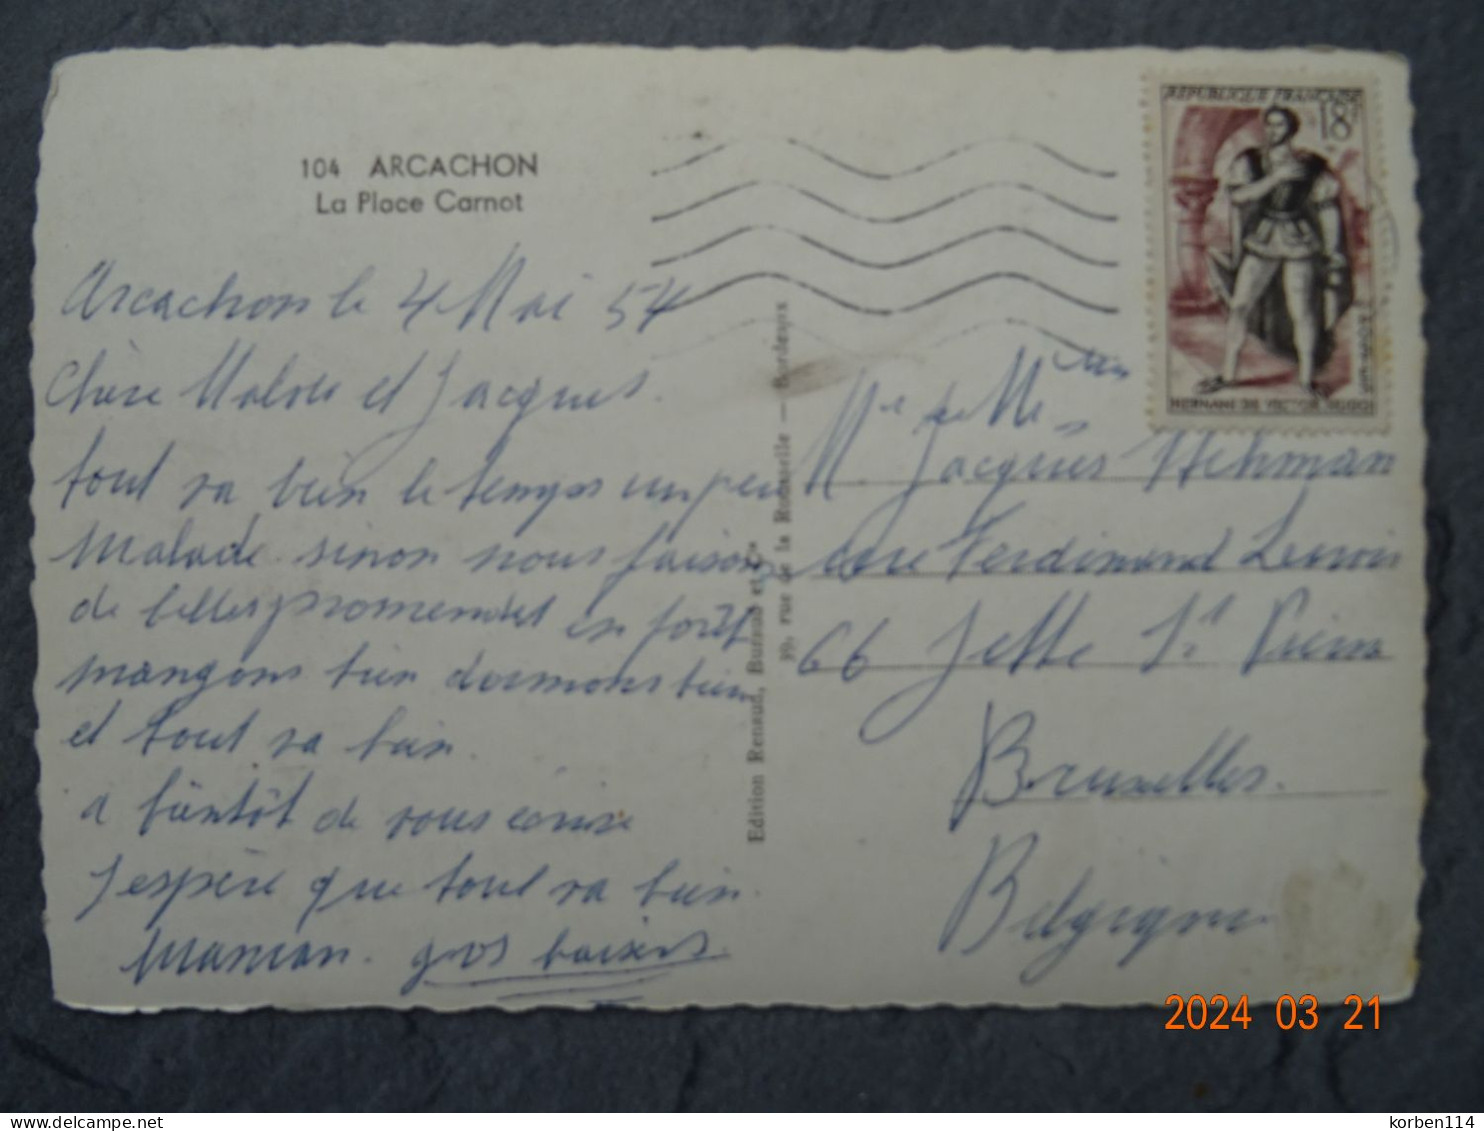 104 ARCACHON
La Place Carnot
Arcachon le 4 Mai 54
Chère Malou et Jacques.
tout va bien le temps un peu
Malade sinon nous faisons
de belles promenades en forêt
mangons bien dormons bien
et tout va bien.
a bientôt de vous écrire
J'espère que tout va bien.
Maman. gros baisers.
Edition Renaud, Buraud et Cie
39, rue de la Rousselle — Bordeaux
REPUBLIQUE FRANÇAISE
18F
HERNANI DE VICTOR HUGO
Mr et Mme
Jacques
Ferdinand Lenoir
66 Jette St Pierre
Bruxelles.
Belgique
2024 03 21
korben114